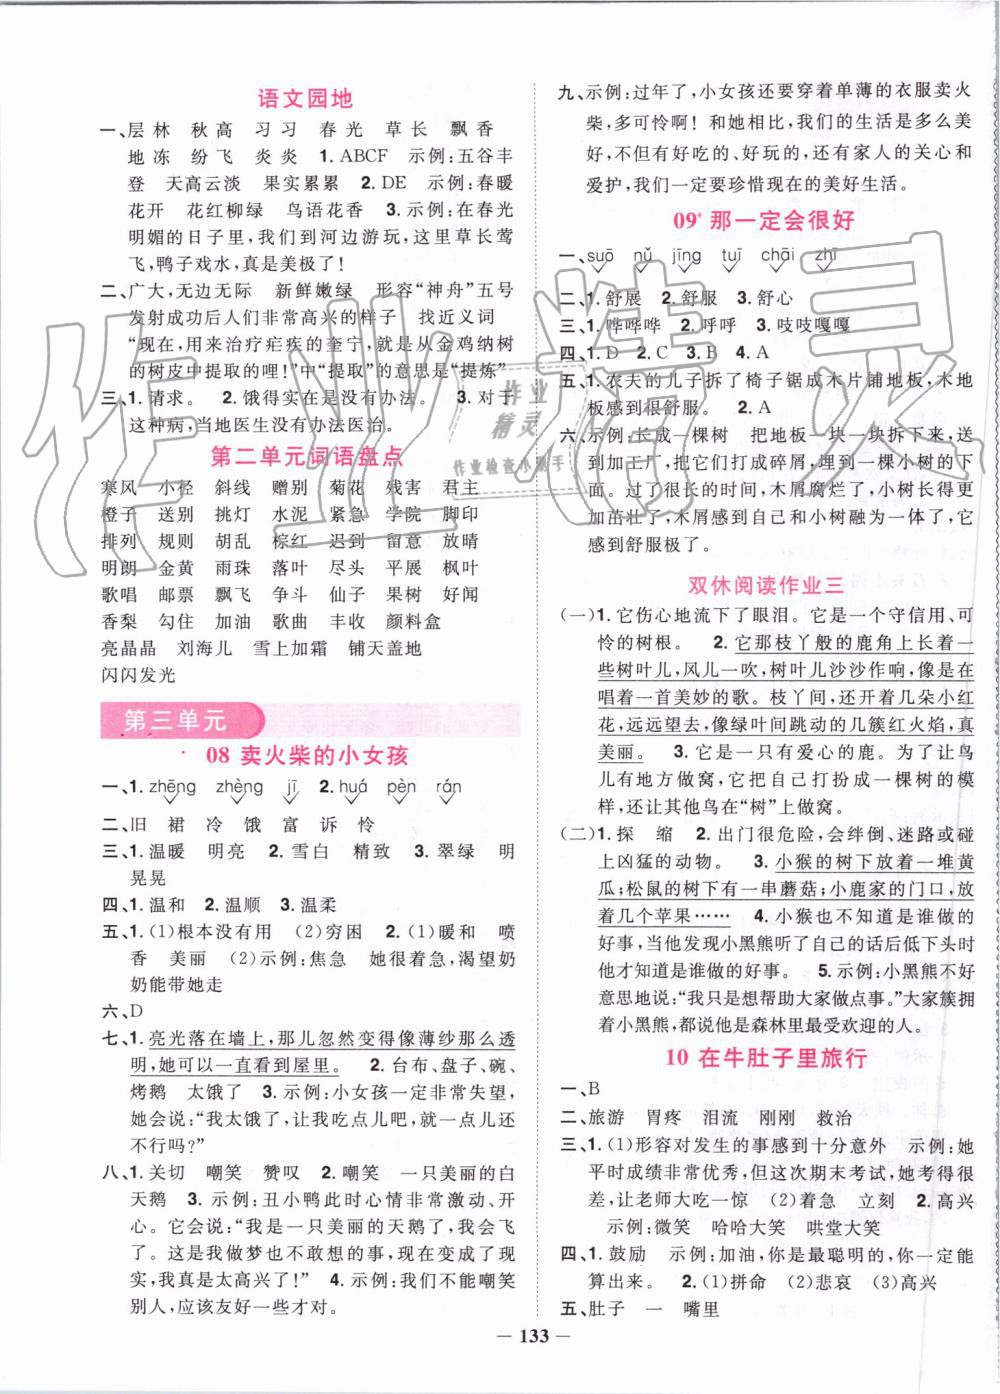 语文园地
一、层林　秋高　习习　春光　草长　飘香
地冻　纷飞　炎炎　1. ABCF　示例:五谷丰
登　天高云淡　果实累累　2. DE　示例:春暖
花开　花红柳绿　鸟语花香　3. 示例:在春光
明媚的日子里,我们到河边游玩,这里草长莺
飞,鸭子戏水,真是美极了!
二、广大,无边无际　新鲜嫩绿　形容“神舟”五号
发射成功后人们非常高兴的样子　找近义词
“现在,用来治疗疟疾的奎宁,就是从金鸡纳树
的树皮中提取的哩!”中“提取”的意思是“提炼”
三、1. 请求。　2. 饿得实在是没有办法。　3. 对于
这种病,当地医生没有办法医治。
第二单元词语盘点
寒风　小径　斜线　赠别　菊花　残害　君主
橙子　送别　挑灯　水泥　紧急　学院　脚印
排列　规则　胡乱　棕红　迟到　留意　放晴
明朗　金黄　雨珠　落叶　尽头　平展　枫叶
歌唱　邮票　飘飞　争斗　仙子　果树　好闻
香梨　勾住　加油　歌曲　丰收　颜料盒
亮晶晶　刘海儿　雪上加霜　铺天盖地
闪闪发光
第三单元
08 卖火柴的小女孩
一、1. zhēng　zhèng　jī　2. huá　pèn　rán
二、旧　裙　冷　饿　富　诉　怜
三、1. 温暖　明亮　2. 雪白　精致　3. 翠绿　明
晃晃
四、1. 温和　2. 温顺　3. 温柔
五、1. (1)根本没有用　(2)穷困　2. (1)暖和　喷
香　美丽　(2)示例:焦急　她很着急,渴望奶
奶能带她走
六、D
七、1. 亮光落在墙上,那儿忽然变得像薄纱那么透
明,她可以一直看到屋里。　2. 台布、盘子、碗、
烤鹅　太饿了　3. 示例:小女孩一定非常失望,
她会说:“我太饿了,让我吃点儿吧,就一点儿还
不行吗?”
八、1. 关切　嘲笑　赞叹　2. 嘲笑　一只美丽的白
天鹅　3. 示例:丑小鸭此时心情非常激动、开
心。它会说:“我是一只美丽的天鹅了!我会飞
了。这是我做梦也不敢想的事,现在变成了现
实,我太高兴了!”　4. 示例:我们不能嘲笑
别人,应该友好一些才对。
九、示例:过年了,小女孩还要穿着单薄的衣服卖火
柴,多可怜啊! 和她相比,我们的生活是多么美
好,不但有好吃的、好玩的,还有家人的关心和
爱护,我们一定要珍惜现在的美好生活。
09* 那一定会很好
一、suō　nǔ　jīng　tuī　chāi　zhī
二、1. 舒展　2. 舒服　3. 舒心
三、1. 哗哗哗　2. 呼呼　3. 吱吱嘎嘎
四、1. D　2. C　3. B　4. A
五、1. 农夫的儿子拆了椅子锯成木片铺地板,木地
板感到很舒服。　2. A
六、示例:长成一棵树　把地板一块一块拆下来,
送到加工厂,把我们打成碎屑,埋到一棵小树的下
面。过了很长的时间,木屑腐烂了,小树长得更
加茁壮了,木屑感到自己和小树融为一体了,它
感到舒服极了。
双休阅读作业三
(一)1. 它伤心地流下了眼泪。它是一个守信用、可
怜的树根。　2. 它那枝丫般的鹿角上长着一
些树叶儿,风儿一吹,树叶儿沙沙作响,像是在
唱着一首美妙的歌。枝丫间,还开着几朵小红
花,远远望去,像绿叶间跳动的几簇红火焰,真
美丽。　3. 它是一只有爱心的鹿。为了让鸟
儿有地方做窝,它把自己打扮成一棵树的模
样,还让其他鸟在“树”上做窝。
(二)1. 探　缩　2. 出门很危险,会绊倒、迷路或碰
上凶猛的动物。　3. 小猴的树下放着一堆黄
瓜;松鼠的树下有一串蘑菇;小鹿家的门口,放
着几个苹果……　4. 小猴也不知道是谁做的
好事,当他发现小黑熊听了自己的话后低下头时
他才知道是谁做的好事。　5. 示例:小黑熊不好
意思地说:“我只是想帮助大家做点事。”大家簇拥
着小黑熊,都说他是森林里最受欢迎的人。
10 在牛肚子里旅行
一、B
二、旅游　胃疼　泪流　刚刚　救治
三、1. (1)形容对发生的事感到十分意外　示例:她
平时成绩非常优秀,但这次期末考试,她考得很
差,让老师大吃一惊　(2)着急　立刻　2. 高兴
示例:微笑　哈哈大笑　哄堂大笑
四、1. 鼓励　示例:加油,你是最聪明的,你一定能
算出来。　2. (1)拼命　(2)悲哀　(3)高兴
五、肚子　一　嘴里
— 133 —
作业精灵
作业精灵
作业检查小助手